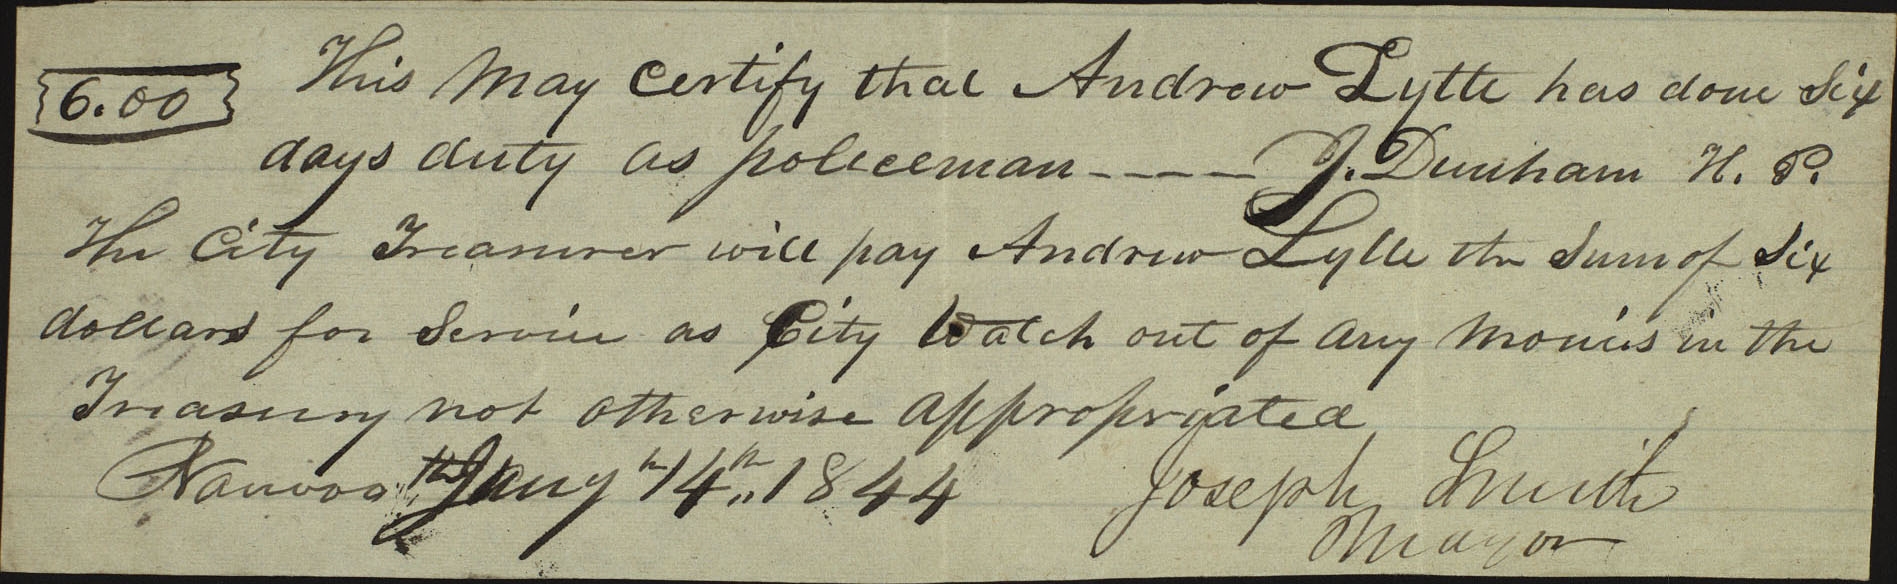 6.00
This May Certify that Andrew Lytle has done Six
days duty as policeman ---- J. Dunham H. P.
The City Treasurer will pay Andrew Lytle the Sum of Six
dollars for Service as City Watch out of any Monies in the
Treasury not otherwise appropriated
Nauvoo Jany 14th 1844
Joseph Smith
Mayor